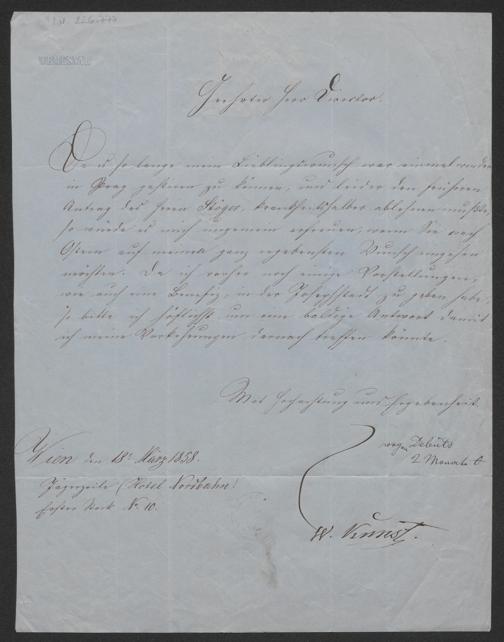 Geehrter Herr Director.
Da es so lange mein Lieblingswunsch war einmal wieder
in Prag gastiren zu können, und leider den früheren
Antrag des Herrn Stöger krankheitshalber ablehnen mußte,
so würde es mich ungemein erfreuen, wenn Sie nach
Ostern auf meinen ganz ergebensten Wunsch eingehen
möchten. Da ich vorher noch einige Vorstellungen,
wie auch eine Benefiz, in der Josephstadt zu geben habe,
so bitte ich höflichst um eine baldige Antwort damit
ich meine Vorkehrungen darnach treffen könnte.
Mit Hochachtung und Ergebenheit.
wegen Debuts
2 Monate
Wien den 18t März 1858.
Jägerzeile (Hotel Nordbahn)
Erster Stock No 10.
W. Kunst.